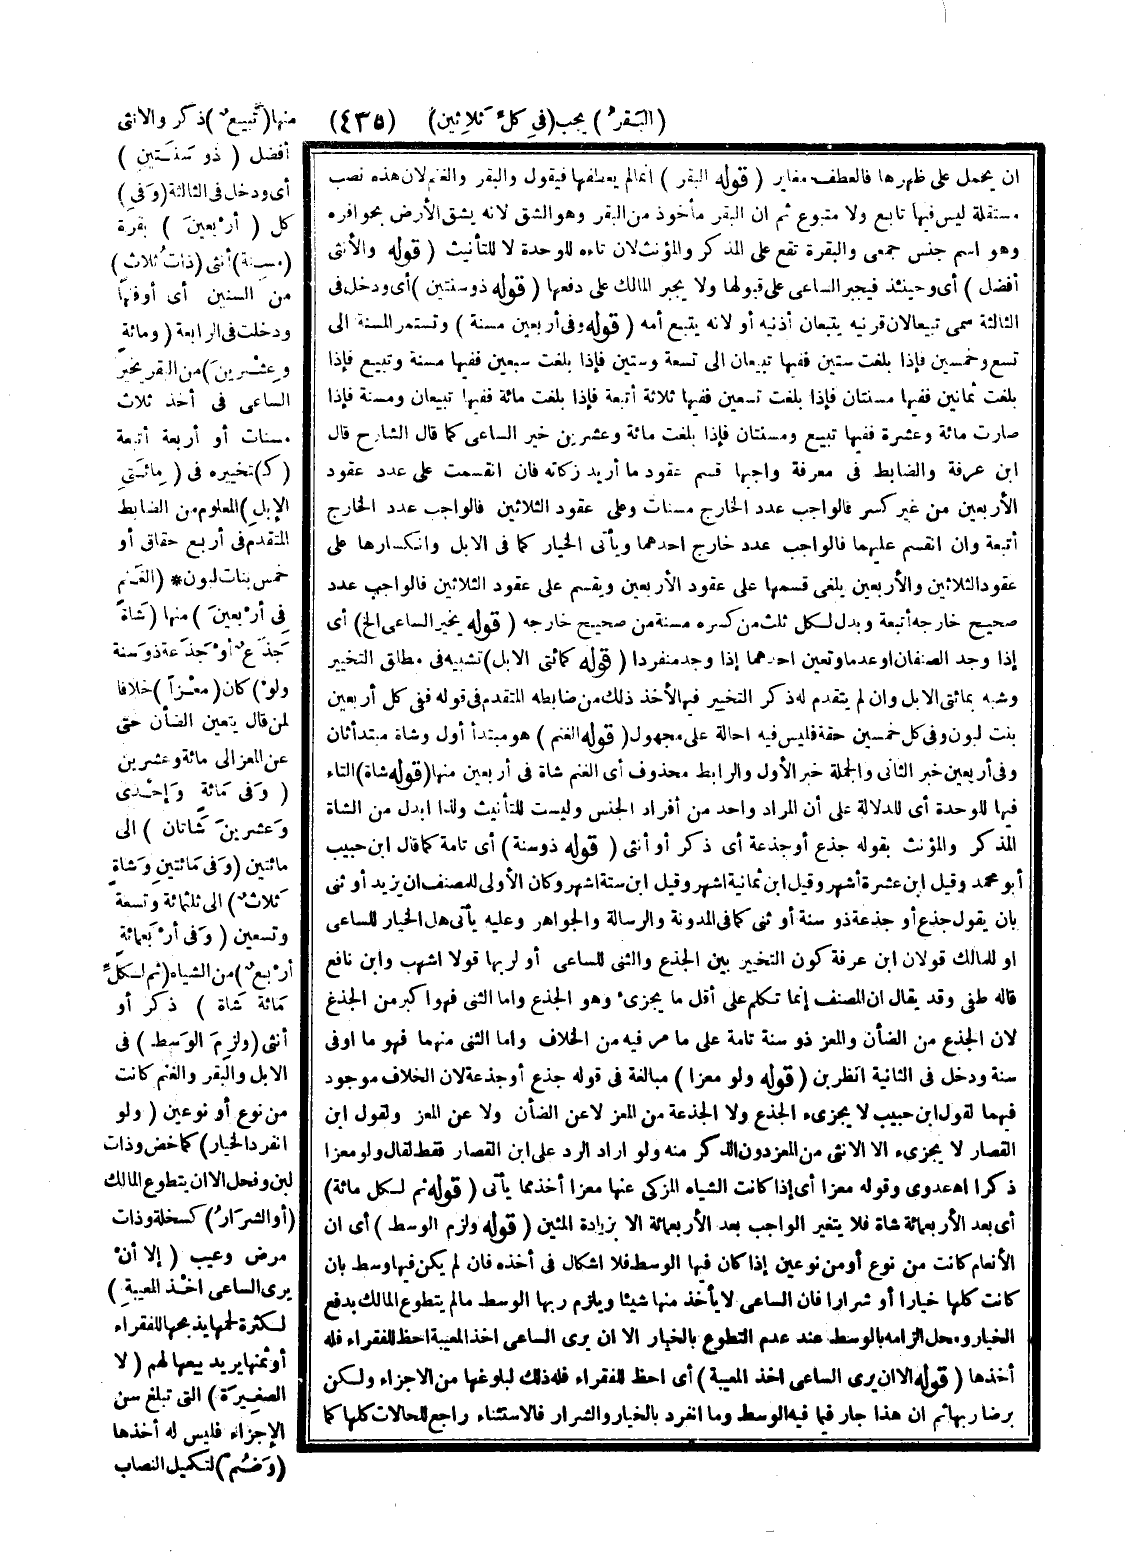 (البَقَرُ) يجب (فِي كُلِّ ثَلاثِينَ) (٤٣٥)
منها (تَبِيعٌ) ذكر والانثى
أفضل (ذُو سَنَتَيْنِ)
أى ودخل فى الثالثة (وَفِى)
كل (أَرْبَعِينَ) بقرة
(مُسِنَّة) أنثى (ذَاتُ ثَلاثٍ)
من السنين أى أوفتها
ودخلت فى الرابعة (ومائةٍ
وعِشْرِينَ) من البقر يخير
الساعى فى أخذ ثلاث
مسنات أو أربعة أتبعة
(كـ) تخييره فى (مِائَتَىِ
الإبلِ) المعلوم من الضابط
المتقدم فى أربع حقاق أو
خمس بنات لبون * (الغَنَم
فِى أَرْبَعِينَ) منها (شَاةٌ
جَذَعٌ أَوْ جَذَعَة ذو سنة
ولَوْ) كان (معْزاً) خلافا
لمن قال يتعين الضأن حتى
عن المعز الى مائة وعشرين
(وَفِى مَائةٍ وَإِحْدَى
وَعشرينَ شَاتان) الى
مائتين (وَفى مَائتينِ وشَاةٍ
ثَلاثٌ) الى ثلثمائة وتسعة
وتسعين (وَفى أرْبَعمائةٍ
أرْبع) من الشياه (ثم لِـكلِّ
مَائة شاة) ذكر أو
أنثى (ولزِمَ الوَسط) فى
الابل والبقر والغنم كانت
من نوع أو نوعين (ولو
انفرد الخيار) كماخض وذات
لبن وفحل الا ان يتطوع المالك
(أو الشرَارُ) كسخلة وذات
مرض وعيب (إلا أنْ
يرى الساعى اخْذ المعيبةِ)
لـكثرة لحمها يذبحها للفقراء
أو ثمنها يريد بيعها لهم (لا
الصغِيرَة) التى تبلغ سن
الإجزاء فليس له أخذها
(وَضُم) لتكميل النصاب
ان يحمل على ظهرها فالعطف مغاير (قوله البقر) انما لم يعطفها فيقول والبقر والغنم لان هذه نصب
مستقلة ليس فيها تابع ولا متبوع ثم ان البقر مأخوذ من البقر وهو الشق لانه يشق الأرض بحوافره
وهو اسم جنس جمعى والبقرة تقع على المذكر والمؤنث لان تاءه للوحدة لا للتأنيث (قوله والأنثى
أفضل) أى وحينئذ فيجبر الساعى على قبولها ولا يجبر المالك على دفعها (قوله ذو سنتين) أى ودخل فى
الثالثة سمى تبيعا لان قرنيه يتبعان أذنيه أو لانه يتبع أمه (قوله وفى أربعين مسنة) وتستمر المسنة الى
تسع وخمسين فإذا بلغت ستين ففيها تبيعان الى تسعة وستين فإذا بلغت سبعين ففيها مسنة وتبيع فإذا
بلغت ثمانين ففيها مسنتان فإذا بلغت تسعين ففيها ثلاثة أتبعة فإذا بلغت مائة ففيها تبيعان ومسنة فإذا
صارت مائة وعشرة ففيها تبيع ومسنتان فإذا بلغت مائة وعشرين خير الساعى كما قال الشارح قال
ابن عرفة والضابط فى معرفة واجبها قسم عقود ما أريد زكاته فان انقسمت على عدد عقود
الأربعين من غير كسر فالواجب عدد الخارج مسنات وعلى عقود الثلاثين فالواجب عدد الخارج
أتبعة وان انقسم عليهما فالواجب عدد خارج احدهما ويأتى الخيار كما فى الابل وانكسارها على
عقود الثلاثين والأربعين يلغى قسمها على عقود الأربعين ويقسم على عقود الثلاثين فالواجب عدد
صحيح خارجه أتبعة وبدل لـكل ثلث من كسره مسنة من صحيح خارجه (قوله يخير الساعى الخ) أى
إذا وجد الصنفان او عدما وتعين احدهما إذا وجد منفردا (قوله كمائتى الابل) تشبيه فى مطلق التخيير
وشبه بمائتى الابل وان لم يتقدم له ذكر التخيير فيها لأخذ ذلك من ضابطه المتقدم فى قوله ففى كل أربعين
بنت لبون وفى كل خمسين حقة فليس فيه احالة على مجهول (قوله الغنم) هو مبتدأ أول وشاة مبتدأ ثان
وفى أربعين خبر الثانى والجملة خبر الأول والرابط محذوف أى الغنم شاة فى أربعين منها (قوله شاة) التاء
فيها للوحدة أى للدلالة على أن المراد واحد من أفراد الجنس وليست للتأنيث ولذا ابدل من الشاة
المذكر والمؤنث بقوله جذع أو جذعة أى ذكر أو أنثى (قوله ذو سنة) أى تامة كما قال ابن حبيب
أبو محمد وقيل ابن عشرة أشهر وقيل ابن ثمانية اشهر وقيل ابن ستة اشهر وكان الأولى للمصنف ان يزيد أو ثنى
بان يقول جذع أو جذعة ذو سنة أو ثنى كما فى المدونة والرسالة والجواهر وعليه يأتى هل الخيار للساعى
او للمالك قولان ابن عرفة كون التخيير بين الجذع والثنى للساعى أو لربها قولا اشهب وابن نافع
قاله طفى وقد يقال ان المصنف إنما تكلم على أقل ما يجزىء وهو الجذع واما الثنى فهو اكبر من الجذع
لان الجذع من الضأن والمعز ذو سنة تامة على ما مر فيه من الخلاف واما الثنى منهما فهو ما اوفى
سنة ودخل فى الثانية انظر بن (قوله ولو معزا) مبالغة فى قوله جذع أو جذعة لان الخلاف موجود
فيهما لقول ابن حبيب لا يجزىء الجذع ولا الجذعة من المعز لا عن الضأن ولا عن المعز ولقول ابن
القصار لا يجزىء الا الانثى من المعز دون الذكر منه ولو اراد الرد على ابن القصار فقط لقال ولو معزا
ذكرا اهـ عدوى وقوله معزا أى إذا كانت الشياه المزكى عنها معزا أخذ مما يأتى (قوله ثم لـكل مائة)
أى بعد الأربعمائة شاة فلا يتغير الواجب بعد الأربعمائة الا بزيادة المئين (قوله ولزم الوسط) أى ان
الأنعام كانت من نوع أو من نوعين إذا كان فيها الوسط فلا اشكال فى أخذه فان لم يكن فيها وسط بان
كانت كلها خيارا أو شرارا فان الساعى لا يأخذ منها شيئا ويلزم ربها الوسط مالم يتطوع المالك بدفع
الخيار ومحل الزامه بالوسط عند عدم التطوع بالخيار الا ان يرى الساعى اخذ المعيبة احظ للفقراء فله
أخذها (قوله الا ان يرى الساعى اخذ المعيبة) أى احظ للفقراء فله ذلك لبلوغها من الاجزاء ولـكن
برضا ربها ثم ان هذا جار فيما فيه الوسط وما انفرد بالخيار والشرار فالاستثناء راجع للحالات كلها كما